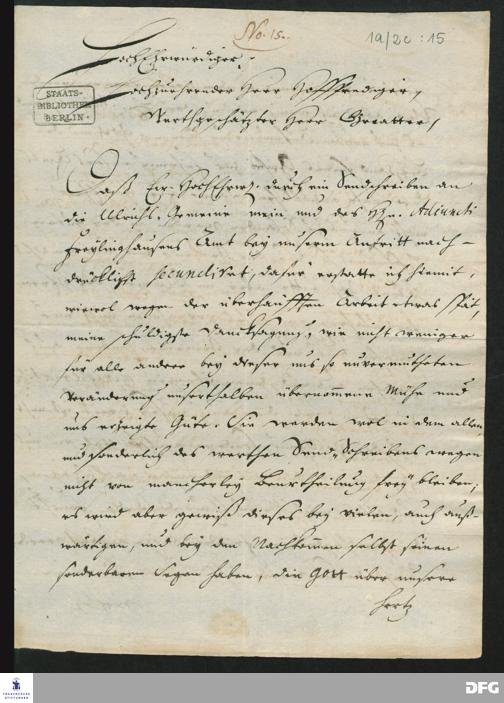 No. 15.
1a/2c : 15
HochEhrwürdiger,
Hochzuehrender Herr Hoffprediger,
Werthgeschätzter Herr Gevatter,
STAATS-
BIBLIOTHEK
BERLIN
Daß Ew. HochEhrw. durch ein Sendschreiben an
die Ulrichs-Gemeine mein und des Hn. Adiuncti
Freylinghausens Amt bey unserm Antritt nach-
drücklichst secundiret, dafür erstatte ich hiemit,
wiewol wegen der überhäufften Arbeit etwas spät,
meine schuldigste Dancksagung, wie nicht weniger
für alle andere bey dieser uns so unvermutheten
Veränderung unserthalben übernommene Mühe und
uns erzeigte Güte. Sie werden wol in dem allen
und sonderlich des werthen Send-Schreibens wegen
nicht von mancherley Beurtheilung frey bleiben;
es wird aber gewiß dieses bey vielen, auch auß-
wärtigen, und bey den Nachkommen selbst seinen
sonderbaren Segen haben, die Gott über unsere
Hertz
FRANCKESCHE
STIFTUNGEN
DFG